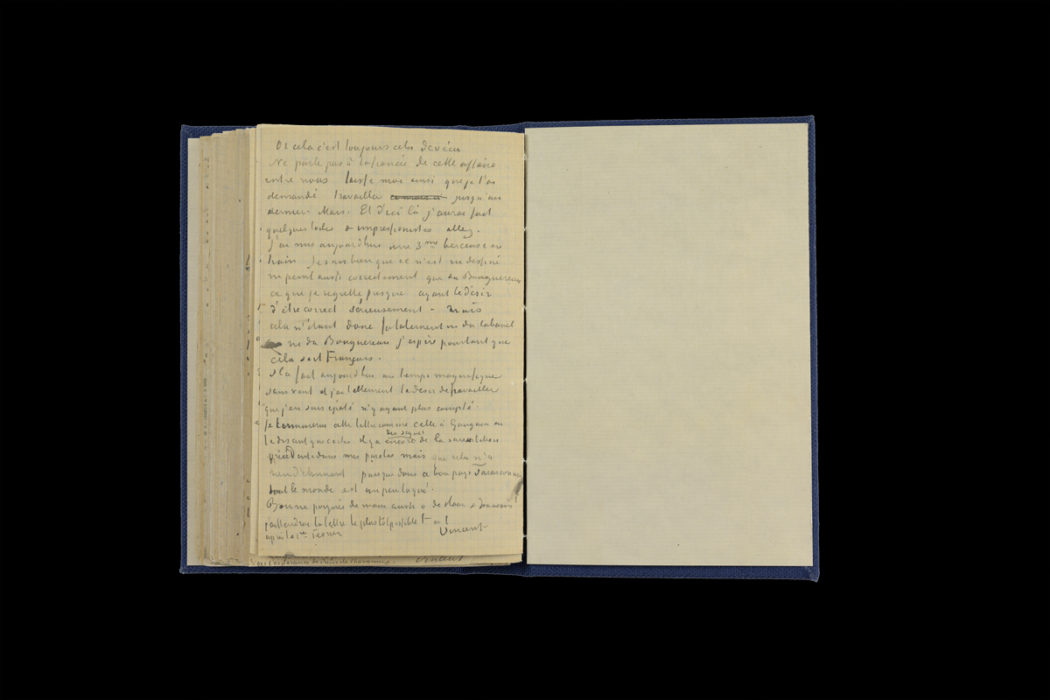 Et cela c'est toujours cela de vécu
Ne parle pas à la fiancée de cette affaire
entre nous laisse moi ainsi que je l'ai
demandé travailler jusqu'au
dernier Mars. Et d'ici là j'aurai fait
quelques toiles impressionistes allez.
J'ai mis aujourd'hui une 3me berceuse en
train. Je sais bien que ce n'est ni dessiné
ni peint aussi correctement que du Bouguereau
ce que je regrette presque ayant le désir
d'être correct sérieusement – mais
cela n'étant donc fatalement ni du Cabanel
ni du Bouguereau j'espère pourtant que
cela soit Français.
Il a fait aujourd'hui un temps magnifique
sans vent et j'ai tellement le désir de travailler
que j'en suis épaté n'y ayant plus compté.
Je terminerai cette lettre comme celle à Gauguin en
te disant que certes il y a encore des signes de la surexcitation
précédente dans mes paroles mais que cela n'a
rien d'étonnant puisque dans ce bon pays Tarasconnais
tout le monde est un peu toqué.
Bonne poignée de main aussi à de Haan &
j'attendrai ta lettre le plus tôt possible t. à t.
après le 1er Février
Vincent
Vincent